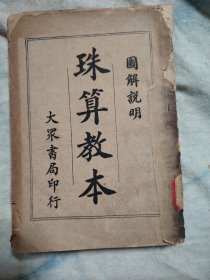 圖解說明
珠算教本
大眾書局印行